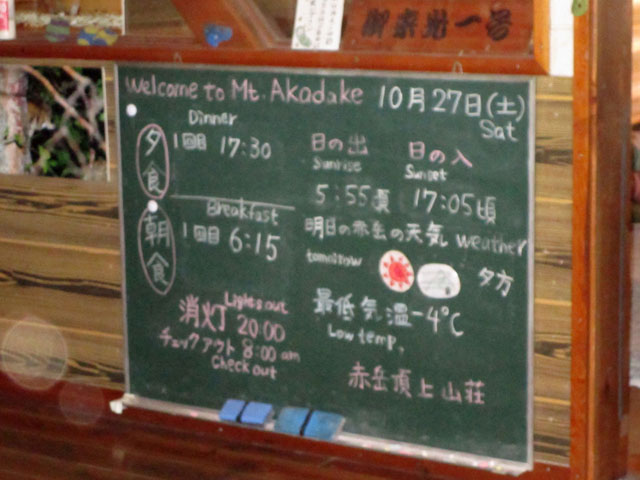 御来光一号
Welcome to Mt. Akadake 10月27日(土)
Sat
Dinner
夕食 1回目 17:30
Breakfast
朝食 1回目 6:15
日の出 日の入
Sunrise Sunset
5:55頃 17:05頃
明日の赤岳の天気 weather
tomorrow 夕方
最低気温 -4℃
Low temp.
Lights out
消灯 20:00
チェックアウト 8:00 am
Check out
赤岳頂上山荘